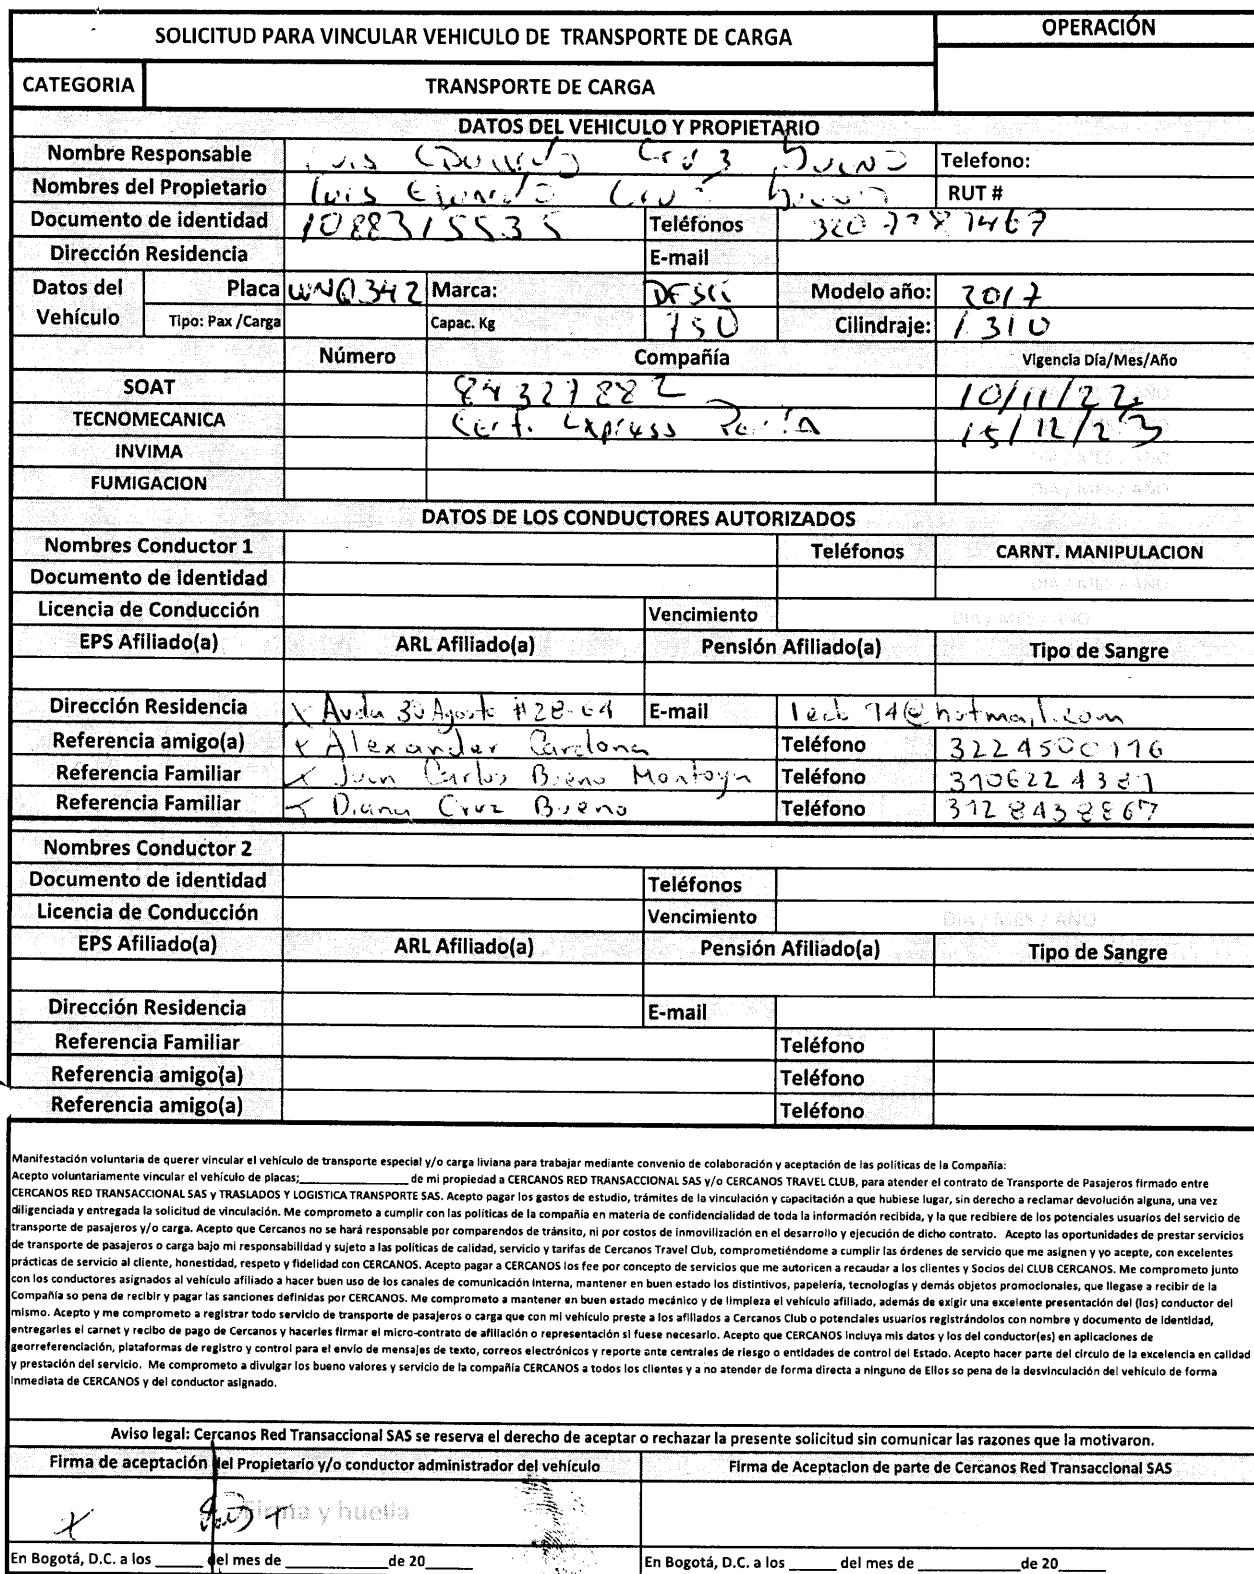 SOLICITUD PARA VINCULAR VEHICULO DE TRANSPORTE DE CARGA
OPERACIÓN
CATEGORIA TRANSPORTE DE CARGA
DATOS DEL VEHICULO Y PROPIETARIO
Nombre Responsable Luis Eduardo Cruz Bueno Telefono:
Nombres del Propietario Luis Eduardo Cruz Bueno RUT #
Documento de identidad 1088315535 Teléfonos
Dirección Residencia E-mail
Datos del Vehículo Placa WNQ342 Marca: DFSK Modelo año: 2017
Tipo: Pax /Carga Capac. Kg 750 Cilindraje: 1310
Número Compañía Vigencia Día/Mes/Año
SOAT 84327882 10/11/22 DIA / MES / AÑO
TECNOMECANICA Cert. Express 15/12/23
INVIMA DIA / MES / AÑO
FUMIGACION DIA / MES / AÑO
DATOS DE LOS CONDUCTORES AUTORIZADOS
Nombres Conductor 1 Teléfonos CARNT. MANIPULACION
Documento de identidad DIA / MES / AÑO
Licencia de Conducción Vencimiento DIA / MES / AÑO
EPS Afiliado(a) ARL Afiliado(a) Pensión Afiliado(a) Tipo de Sangre
Dirección Residencia x Avda 30 Agosto #28-64 E-mail lecb 94@hotmail.com
Referencia amigo(a) x Alexander Cardona Teléfono 3224500116
Referencia Familiar x Juan Carlos Bueno Montoya Teléfono 3106224381
Referencia Familiar x Diana Cruz Bueno Teléfono 3128438867
Nombres Conductor 2
Documento de identidad Teléfonos
Licencia de Conducción Vencimiento DIA / MES / AÑO
EPS Afiliado(a) ARL Afiliado(a) Pensión Afiliado(a) Tipo de Sangre
Dirección Residencia E-mail
Referencia Familiar Teléfono
Referencia amigo(a) Teléfono
Referencia amigo(a) Teléfono
Manifestación voluntaria de querer vincular el vehículo de transporte especial y/o carga liviana para trabajar mediante convenio de colaboración y aceptación de las políticas de la Compañía:
Acepto voluntariamente vincular el vehículo de placas;__________________ de mi propiedad a CERCANOS RED TRANSACCIONAL SAS y/o CERCANOS TRAVEL CLUB, para atender el contrato de Transporte de Pasajeros firmado entre
CERCANOS RED TRANSACCIONAL SAS y TRASLADOS Y LOGISTICA TRANSPORTE SAS. Acepto pagar los gastos de estudio, trámites de la vinculación y capacitación a que hubiese lugar, sin derecho a reclamar devolución alguna, una vez
diligenciada y entregada la solicitud de vinculación. Me comprometo a cumplir con las políticas de la compañía en materia de confidencialidad de toda la información recibida, y la que recibiere de los potenciales usuarios del servicio de
transporte de pasajeros y/o carga. Acepto que Cercanos no se hará responsable por comparendos de tránsito, ni por costos de inmovilización en el desarrollo y ejecución de dicho contrato. Acepto las oportunidades de prestar servicios
de transporte de pasajeros o carga bajo mi responsabilidad y sujeto a las políticas de calidad, servicio y tarifas de Cercanos Travel Club, comprometiéndome a cumplir las órdenes de servicio que me asignen y yo acepte, con excelentes
prácticas de servicio al cliente, honestidad, respeto y fidelidad con CERCANOS. Acepto pagar a CERCANOS los fee por concepto de servicios que me autoricen a recaudar a los clientes y Socios del CLUB CERCANOS. Me comprometo junto
con los conductores asignados al vehículo afiliado a hacer buen uso de los canales de comunicación interna, mantener en buen estado los distintivos, papelería, tecnologías y demás objetos promocionales, que llegase a recibir de la
Compañía so pena de recibir y pagar las sanciones definidas por CERCANOS. Me comprometo a mantener en buen estado mecánico y de limpieza el vehículo afiliado, además de exigir una excelente presentación del (los) conductor del
mismo. Acepto y me comprometo a registrar todo servicio de transporte de pasajeros o carga que con mi vehículo preste a los afiliados a Cercanos Club o potenciales usuarios registrándolos con nombre y documento de identidad,
entregarles el carnet y recibo de pago de Cercanos y hacerles firmar el micro-contrato de afiliación o representación si fuese necesario. Acepto que CERCANOS incluya mis datos y los del conductor(es) en aplicaciones de
georreferenciación, plataformas de registro y control para el envío de mensajes de texto, correos electrónicos y reporte ante centrales de riesgo o entidades de control del Estado. Acepto hacer parte del circulo de la excelencia en calidad
y prestación del servicio. Me comprometo a divulgar los bueno valores y servicio de la compañía CERCANOS a todos los clientes y a no atender de forma directa a ninguno de Ellos so pena de la desvinculación del vehículo de forma
inmediata de CERCANOS y del conductor asignado.
Aviso legal: Cercanos Red Transaccional SAS se reserva el derecho de aceptar o rechazar la presente solicitud sin comunicar las razones que la motivaron.
Firma de aceptación del Propietario y/o conductor administrador del vehículo Firma de Aceptacion de parte de Cercanos Red Transaccional SAS
x Firma y huella
En Bogotá, D.C. a los ______ del mes de ___________de 20_____ En Bogotá, D.C. a los ______ del mes de ___________de 20_____